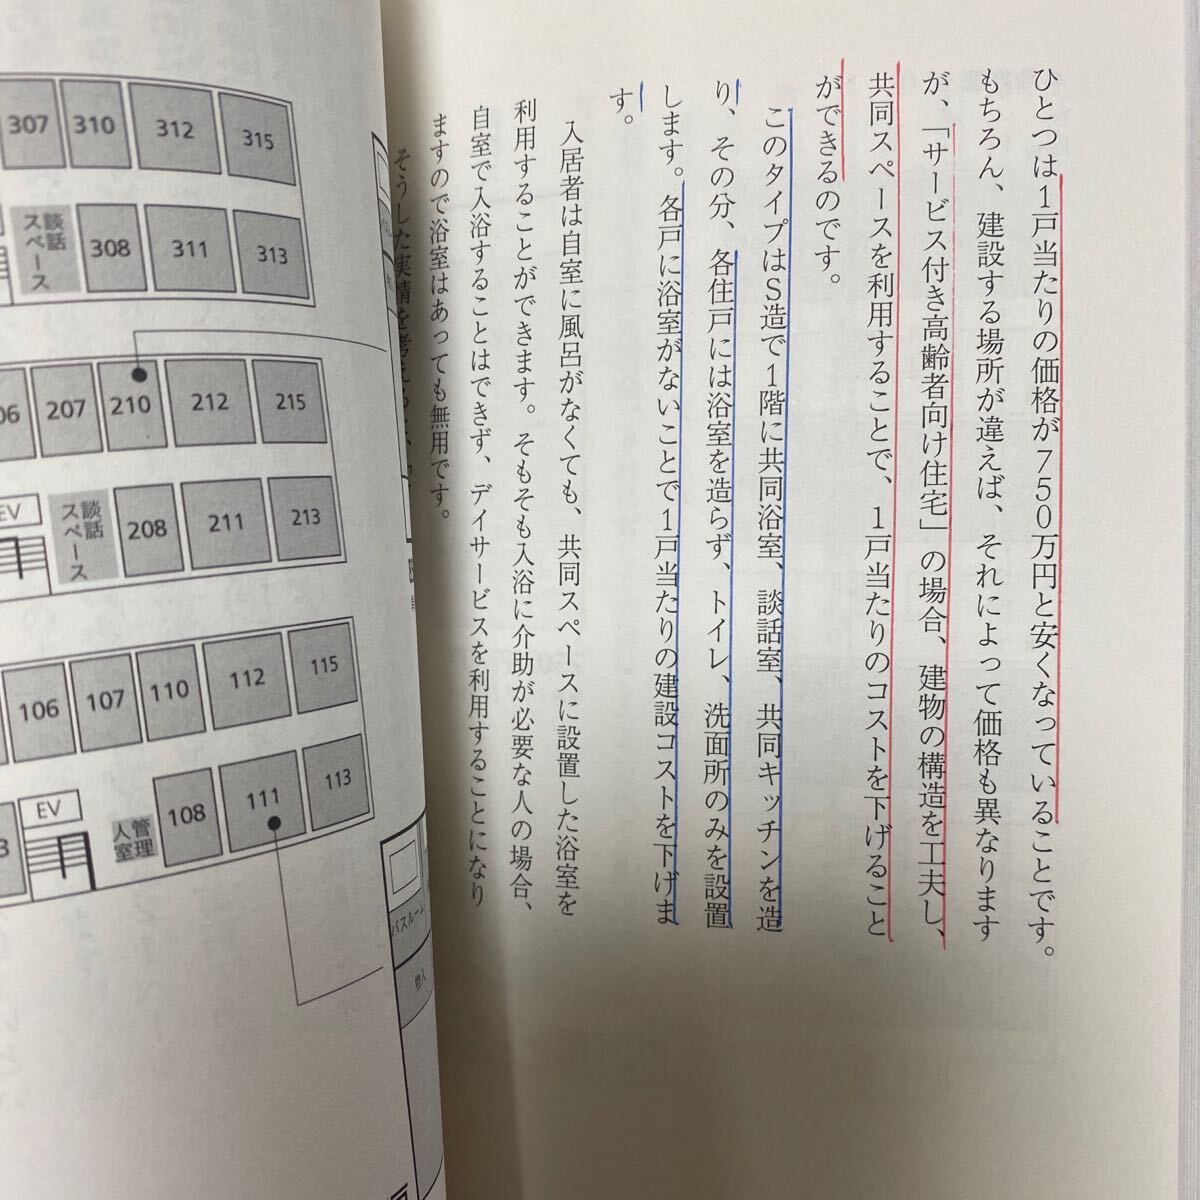 ひとつは1戸当たりの価格が750万円と安くなっていることです。
もちろん、建設する場所が違えば、それによって価格も異なります
が、「サービス付き高齢者向け住宅」の場合、建物の構造を工夫し、
共同スペースを利用することで、1戸当たりのコストを下げること
ができるのです。
このタイプはS造で1階に共同浴室、談話室、共同キッチンを造
り、その分、各住戸には浴室を造らず、トイレ、洗面所のみを設置
します。各戸に浴室がないことで1戸当たりの建設コストを下げま
す。
入居者は自室に風呂がなくても、共同スペースに設置した浴室を
利用することができます。そもそも入浴に介助が必要な人の場合、
自室で入浴することはできず、デイサービスを利用することになり
ますので浴室はあっても無用です。
そうした実情を考えると
307 310 312 315
談話スペース 308 311 313
207 210 212 215
EV 談話スペース 208 211 213
106 107 110 112 115
EV 管理人室 108 111 113
バスルーム
物入